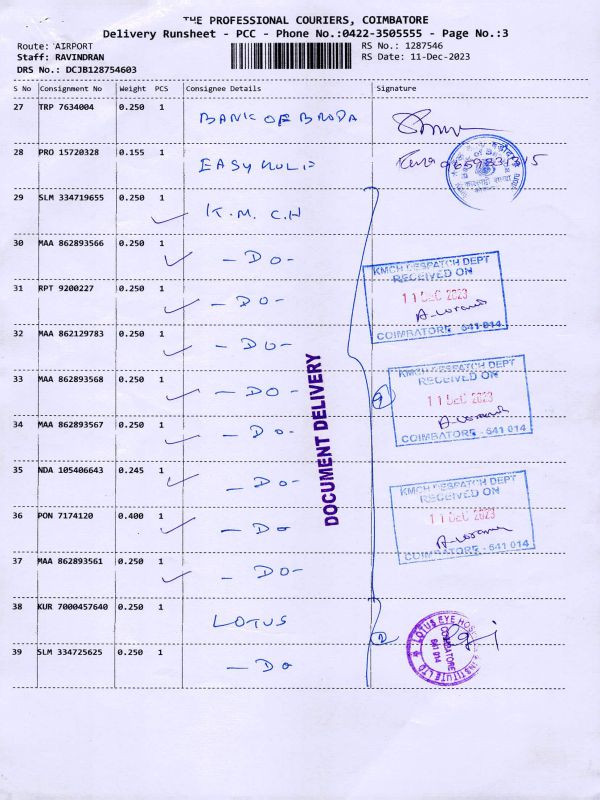 THE PROFESSIONAL COURIERS, COIMBATORE
Delivery Runsheet - PCC - Phone No.:0422-3505555 - Page No.:3
Route: AIRPORT
RS No.: 1287546
Staff: RAVINDRAN
RS Date: 11-Dec-2023
DRS No.: DCJB128754603
S No Consignment No Weight PCS Consignee Details Signature
27 TRP 7634004 0.250 1 BANK OF BRODA
28 PRO 15720328 0.155 1 EASY
29 SLM 334719655 0.250 1 K.M.C.H
30 MAA 862893566 0.250 1 -DO-
31 RPT 9200227 0.250 1 -DO-
32 MAA 862129783 0.250 1 -DO-
33 MAA 862893568 0.250 1 -DO-
34 MAA 862893567 0.250 1 -DO-
35 NDA 105406643 0.245 1 -DO-
36 PON 7174120 0.400 1 -DO
37 MAA 862893561 0.250 1 -DO-
38 KUR 7000457640 0.250 1 LOTUS
39 SLM 334725625 0.250 1 -DO
DOCUMENT DELIVERY
KMCH DESPATCH DEPT
RECEIVED ON
11 DEC 2023
COIMBATORE - 641 014
9
KMCH DESPATCH DEPT
RECEIVED ON
11 DEC 2023
COIMBATORE - 641 014
KMCH DESPATCH DEPT
RECEIVED ON
11 DEC 2023
COIMBATORE - 641 014
2
LOTUS EYE HOSPITAL & INSTITUTE LTD
COIMBATORE
641 014